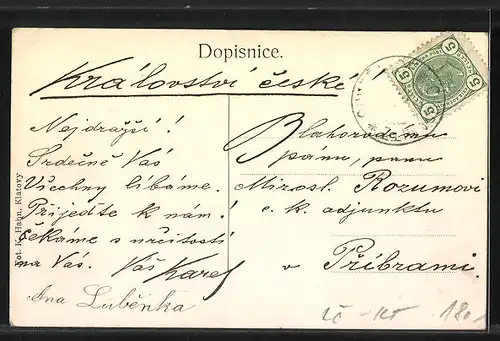 Dopisnice.
Království české
Nejdražší!
Srdečně Vás
Všechny líbáme.
Přijeďte k nám!
čekáme s určitostí
na Vás. Váš Karel
Luběnka
Blahorodému
pánu, panu
Mirosl. Rozumovi
c. k. adjunktu
v Příbrami.
Fot. K. Hahn, Klatovy
5 5
5 5
120